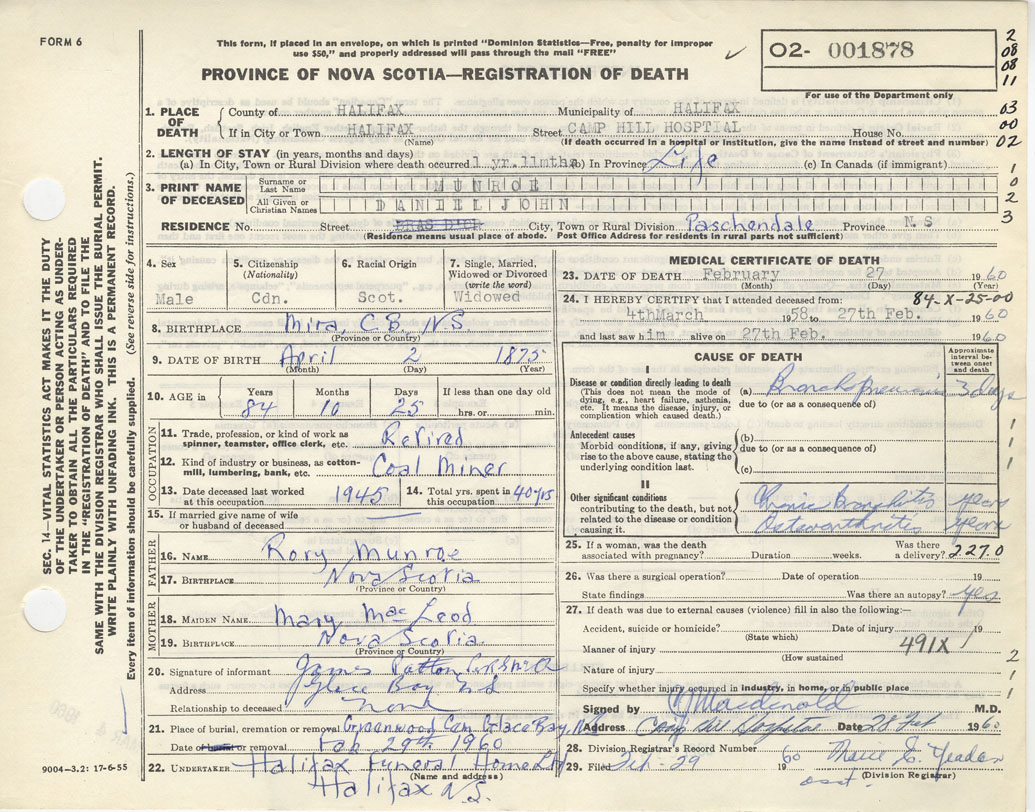 FORM 6
This form, if placed in an envelope, on which is printed "Dominion Statistics—Free, penalty for improper
use $50," and properly addressed will pass through the mail "FREE"
O2- 001878
For use of the Department only
PROVINCE OF NOVA SCOTIA—REGISTRATION OF DEATH
2
08
08
11
03
00
02
1
0
2
3
SEC. 14—VITAL STATISTICS ACT MAKES IT THE DUTY
OF THE UNDERTAKER OR PERSON ACTING AS UNDER-
TAKER TO OBTAIN ALL THE PARTICULARS REQUIRED
IN THE "REGISTRATION OF DEATH" AND TO FILE THE
SAME WITH THE DIVISION REGISTRAR WHO SHALL ISSUE THE BURIAL PERMIT.
WRITE PLAINLY WITH UNFADING INK. THIS IS A PERMANENT RECORD.
Every item of information should be carefully supplied. (See reverse side for instructions.)
1. PLACE OF DEATH
County of HALIFAX Municipality of HALIFAX
If in City or Town HALIFAX Street CAMP HILL HOSPTIAL House No.
(Name) (If death occurred in a hospital or institution, give the name instead of street and number)
2. LENGTH OF STAY (in years, months and days)
(a) In City, Town or Rural Division where death occurred 1 yr. 11mths (b) In Province Life (c) In Canada (if immigrant)
3. PRINT NAME OF DECEASED
Surname or Last Name MUNROE
All Given or Christian Names DANIEL JOHN
RESIDENCE No. Street BRAS D'OR City, Town or Rural Division Paschendale Province N S
(Residence means usual place of abode. Post Office Address for residents in rural parts not sufficient)
4. Sex
Male
5. Citizenship
(Nationality)
Cdn.
6. Racial Origin
Scot.
7. Single, Married,
Widowed or Divorced
(write the word)
Widowed
8. BIRTHPLACE Mira, C.B., N.S.
(Province or Country)
9. DATE OF BIRTH April 2 1875
(Month) (Day) (Year)
10. AGE in
Years Months Days If less than one day old
84 10 25 hrs. or min.
OCCUPATION
11. Trade, profession, or kind of work as
spinner, teamster, office clerk, etc. Retired
12. Kind of industry or business, as cotton-
mill, lumbering, bank, etc. Coal Miner
13. Date deceased last worked
at this occupation 1945
14. Total yrs. spent in
this occupation 40 yrs
15. If married give name of wife
or husband of deceased
FATHER
16. NAME Rory Munroe
17. BIRTHPLACE Nova Scotia
(Province or Country)
MOTHER
18. MAIDEN NAME Mary MacLeod
19. BIRTHPLACE Nova Scotia
(Province or Country)
20. Signature of informant James Patton
Address Glace Bay NS
Relationship to deceased None
21. Place of burial, cremation or removal Greenwood Cem Glace Bay, NS
Date of burial or removal Feb 29th 1960
22. UNDERTAKER Halifax Funeral Home Ltd
(Name and address)
Halifax N.S.
9004-3.2: 17-6-55
MEDICAL CERTIFICATE OF DEATH
23. DATE OF DEATH February 27 1960
(Month) (Day) (Year)
84-X-25-00
24. I HEREBY CERTIFY that I attended deceased from:
4thMarch 1958 to 27th Feb. 1960
and last saw him alive on 27th Feb. 1960
CAUSE OF DEATH
Approximate
interval between
onset and death
I
Disease or condition directly leading to death
(This does not mean the mode of
dying, e.g., heart failure, asthenia,
etc. It means the disease, injury, or
complication which caused death.)
(a) Bronchopneumonia 3 days
due to (or as a consequence of)
Antecedent causes
Morbid conditions, if any, giving
rise to the above cause, stating the
underlying condition last.
(b)
due to (or as a consequence of)
(c)
1
1
1
II
Other significant conditions
contributing to the death, but not
related to the disease or condition
causing it.
Chronic Bronchitis years
Osteoarthritis years
25. If a woman, was the death
associated with pregnancy? Duration weeks. Was there
a delivery? 2270
26. Was there a surgical operation? Date of operation 19
State findings Was there an autopsy? yes
27. If death was due to external causes (violence) fill in also the following:—
Accident, suicide or homicide? Date of injury 19
(State which)
Manner of injury 491X
(How sustained
Nature of injury
2
1
1
Specify whether injury occurred in industry, in home, or in public place
Signed by Macdonald M.D.
Address Camp Hill Hospital Date 28 Feb 1960
28. Division Registrar's Record Number
29. Filed Feb - 29 1960
(Division Registrar)
asst.